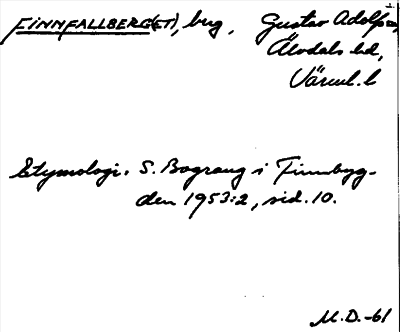 FINNFALLBERG(ET), berg, Gustav Adolfs sn,
Älvdals hd,
Värml. l
Etymologi. S. Bograng i Finnbyg-
den 1953:2, sid. 10.
M.D.-61